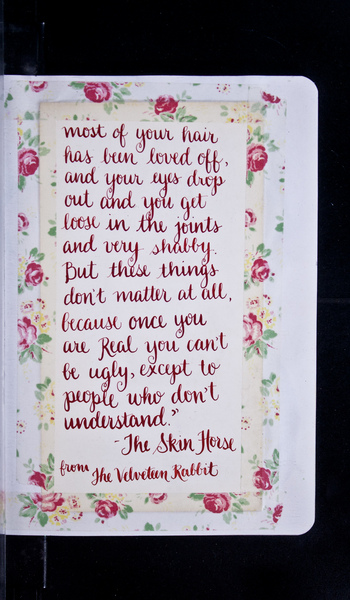 most of your hair
has been loved off,
and your eyes drop
out and you get
loose in the joints
and very shabby.
But these things
don't matter at all,
because once you
are Real you can't
be ugly, except to
people who don't
understand."
-The Skin Horse
from The Velveteen Rabbit